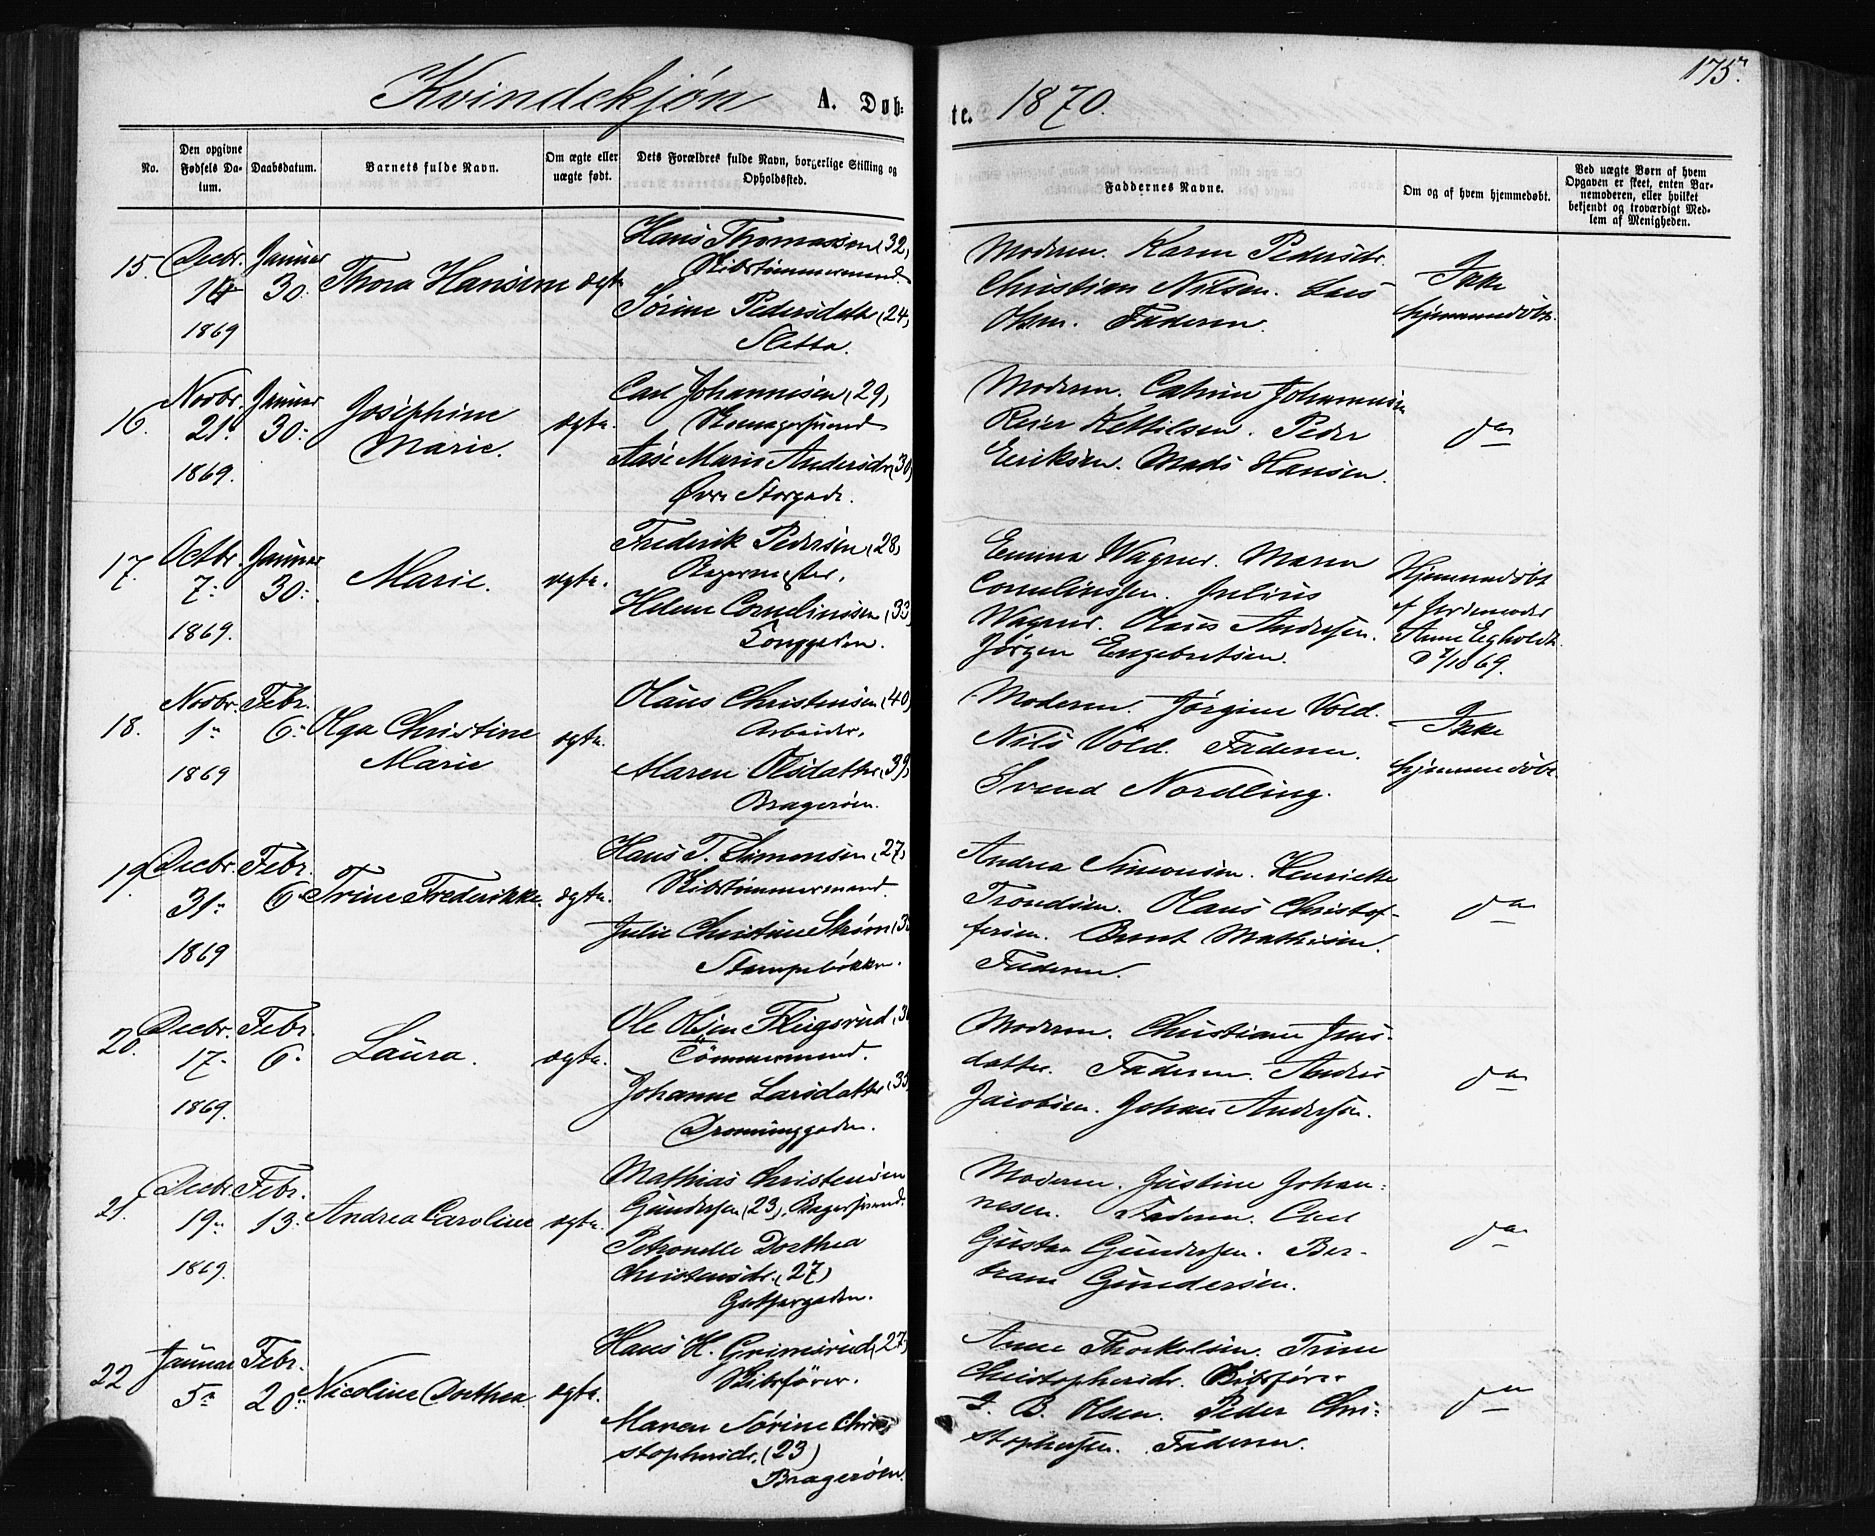 Kvindekjøn A. Døb-
te. 1870.
175.
No.
Den opgivne Fødsels Da-
tum.
Daabsdatum.
Barnets fulde Navn.
Om ægte eller
uægte født.
Dets Forældres fulde Navn, borgerlige Stilling og
Opholdssted.
Faddernes Navne.
Om og af hvem hjemmedøbt.
Ved uægte Børn af hvem
Opgaven er skeet, enten Bar-
nemoderen, eller hvilket
bekjendt og troværdigt Med-
lem af Menigheden.
15. Decbr. Januar
30. Thora Hansine ægte
1869
Hans Thomassen (32)
Skibstømmermand
Sørine Pedersdatter (24)
Sletta.
Moderen. Karen Pedersdr.
Christian Nilsen. Lars
Olsen. Faderen.
Ikke
hjemmedøbt.
16. Novbr. Januar
21. 30. Josephine
Marie. ægte.
1869.
Carl Johannesen (29)
Skomagersvend
Aase Marie Andersdr. (30)
Øvre Storgade.
Moderen. Cathrine Johannesen
Reier Kettilsen. Peder
Eriksen. Mads Hansen.
do
17. Octbr. Januar
7. 30. Marie. ægte.
1869.
Frederik Pedersen (28)
Bagermester.
Helene Corneliussen (33)
Tonggaden.
Emma Wagner. Maren
Corneliussen. Julius
Wagner. Olaus Andersen.
Jørgen Engebretsen.
Hjemmedøbt
af Jordemoder
Anne Egholdt
18. Novbr. Febr.
1. 6. Olga Christine
Marie ægte.
1869
Olaus Christensen (40)
Arbeider.
Maren Olsdatter (39)
Bragerøen.
Moderen. Jørgine Vold.
Nils Vold. Faderen.
Svend Nordling.
Ikke
hjemmedøbt.
19. Decbr. Febr.
31. 6. Trine Frederikke. ægte.
1869
Hans T. Simonsen (27)
Skibstømmermand.
Julie Christine Strøm
Stampebækken.
Andrea Simonsen. Henriette
Trondsen. Olaus Christof-
fersen. Bernt Mathisen.
Faderen.
do
20. Decbr. Febr.
17. 6. Laura. ægte.
1869.
Ole Olsen Flugsrud
Tømmermand.
Johanne Larsdatter (35)
Dronninggaden.
Moderen. Christiane Jens-
datter. Faderen. Andres
Jacobsen. Johan Andersen.
do
21. Decbr. Febr.
19. 13. Andrea Caroline ægte.
1869.
Mathias Christensen
Gundersen (23), Bagersvend.
Petronelle Dorthea
Christensdr. (27)
Gjetergaden.
Moderen. Justine Johan-
nesen. Faderen. Carl
Gustav Gundersen. Ber-
tram Gundersen.
do
22 Januar Febr.
5. 20. Nicoline Dorthea. ægte.
Hans H. Grimsrud (27)
Skibsfører.
Maren Sørine Chri-
stophersdr. (23)
Bragerøen.
Anne Thorkelsen. Trine
Christophersdr. Skibsfører
B. Olsen. Peder Chri-
stophersen. Faderen.
do